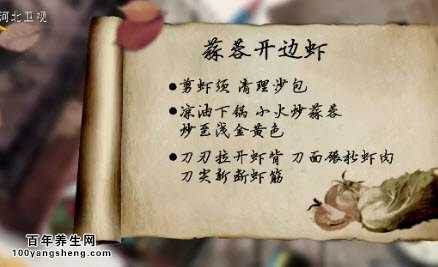 河北卫视
蒜蓉开边虾
●剪虾须 清理沙包
●凉油下锅 小火炒蒜蓉
炒至浅金黄色
●刀刃拉开虾背 刀面碾松虾肉
刀尖斩断虾筋
百年养生网
100yangsheng.com